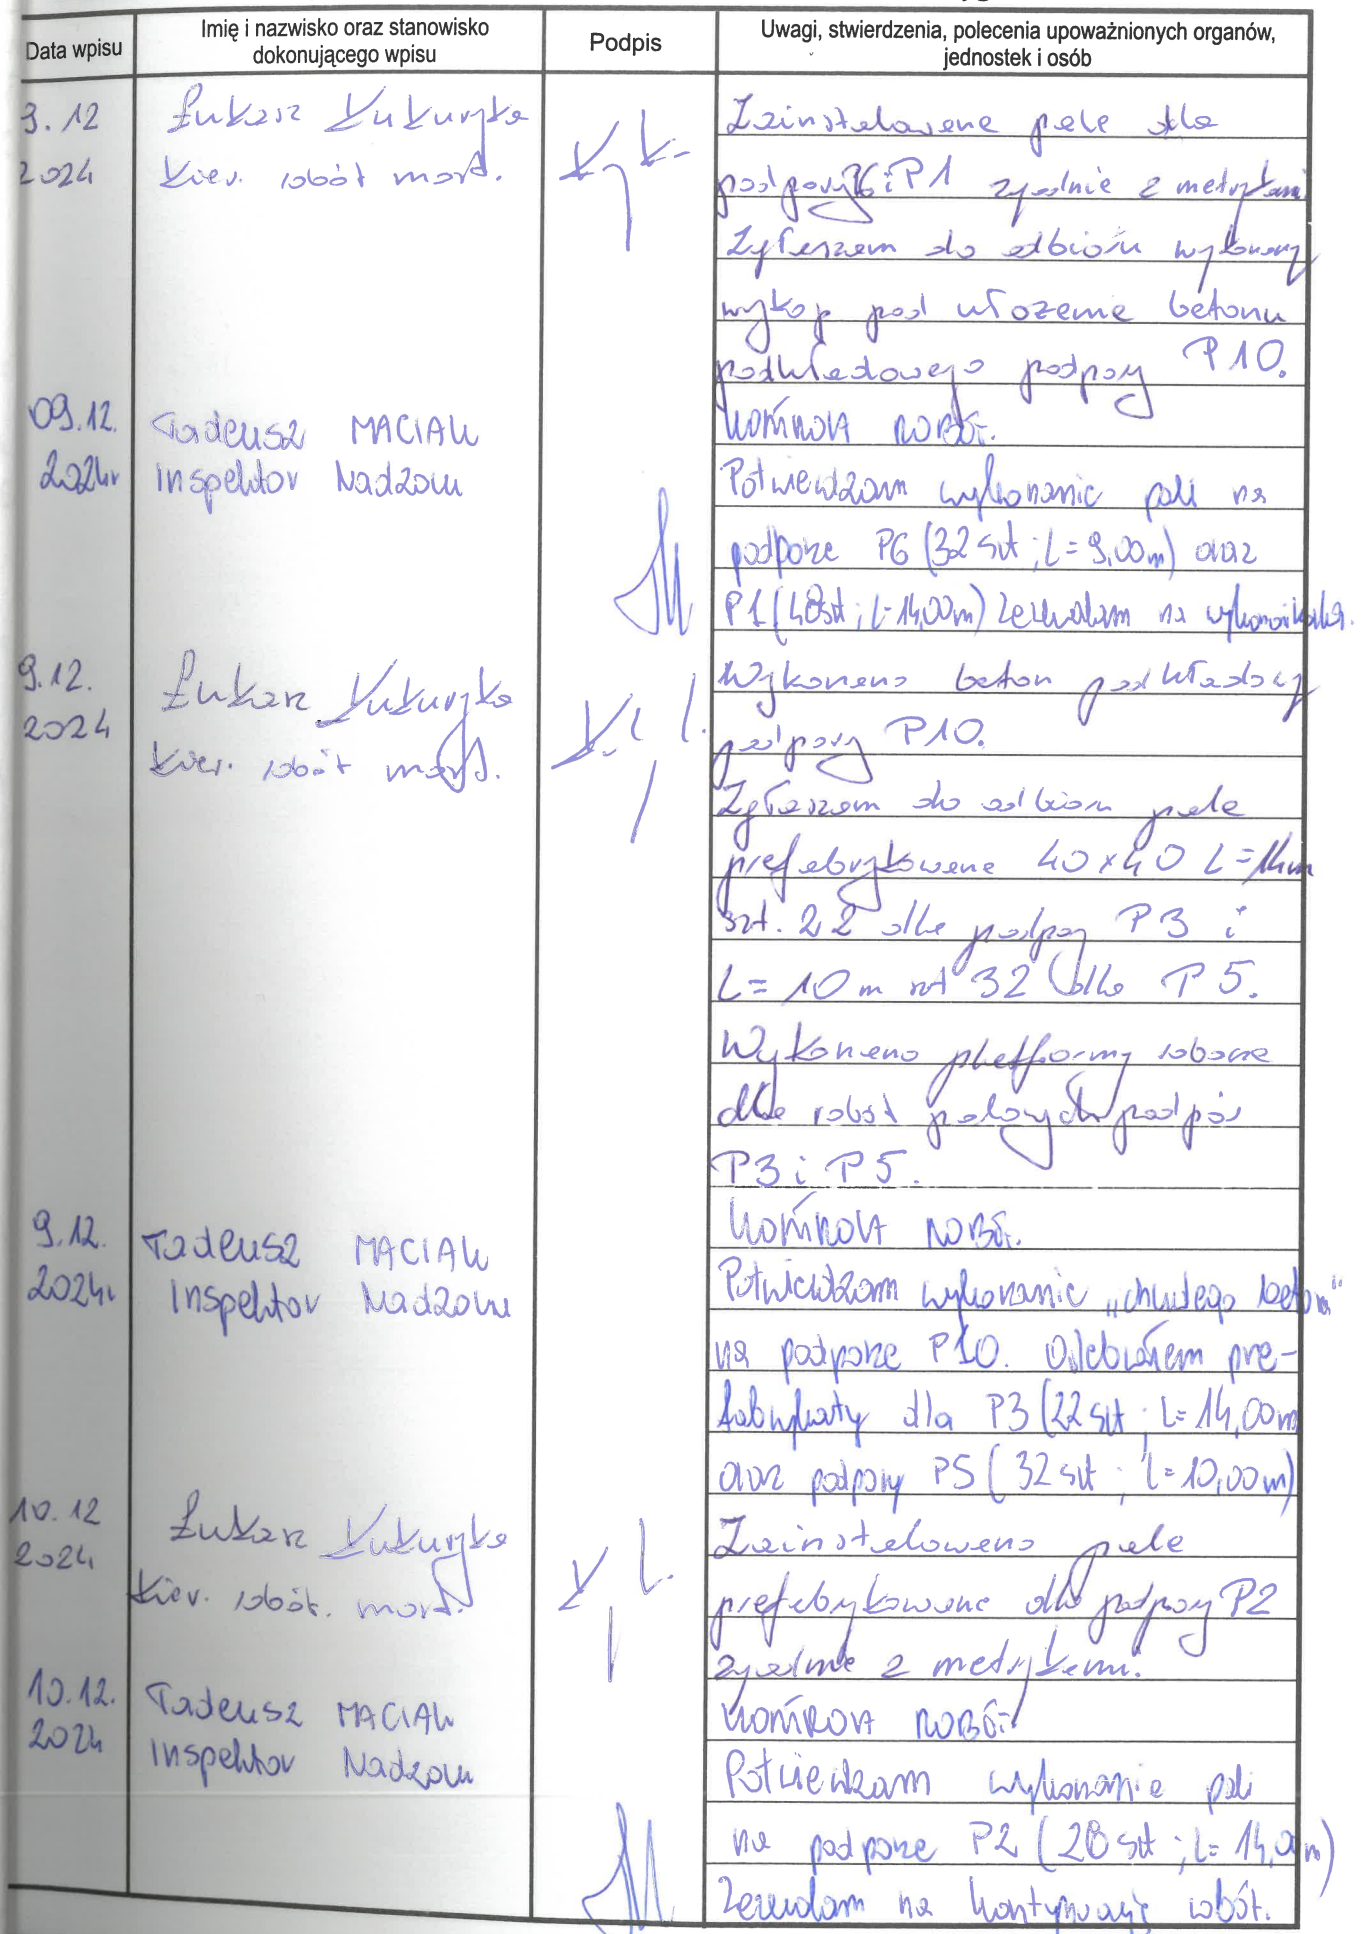 Data wpisu
Imię i nazwisko oraz stanowisko
dokonującego wpisu
Podpis
Uwagi, stwierdzenia, polecenia upoważnionych organów,
jednostek i osób
9.12
2024
Łukasz Kukuryka
Kier. robót most.
Zainstalowane pale dla
podpory P6 i P1 zgodnie z metrykami
Zgłaszam do odbioru wykonany
wykop pod ułożenie betonu
podkładowego podpory P10.
09.12.
2024r
Tadeusz MACIAK
Inspektor Nadzoru
KONTROLA ROBÓT.
Potwierdzam wykonanie pali na
podporze P6 (32 szt ; L=9,00m) oraz
P1 (48szt ; L=14,00m) Zezwalam na
9.12.
2024
Łukasz Kukuryka
Kier. robót most.
Wykonano beton podkładowy
podpory P10.
Zgłaszam do odbioru pale
prefabrykowane 40x40 L=14m
szt. 22 dla podpory P3 i
L=10m szt 32 dla P5.
Wykonano platformy robocze
dla robót palowych podpór
P3 i P5.
9.12.
2024r
Tadeusz MACIAK
Inspektor Nadzoru
KONTROLA ROBÓT.
Potwierdzam wykonanie „chudego betonu"
na podporze P10. Odebrałem pre-
fabrykaty dla P3 (22 szt ; L=14,00m
oraz podpory P5 (32 szt ; L=10,00m)
10.12
2024
Łukasz Kukuryka
Kier. robót. most.
Zainstalowano pale
prefabrykowane dla podpory P2
zgodnie z metrykami.
10.12.
2024
Tadeusz MACIAK
Inspektor Nadzoru
KONTROLA ROBÓT.
Potwierdzam wykonanie pali
na podporze P2 (28 szt ; L=14,00m)
Zezwalam na kontynuację robót.